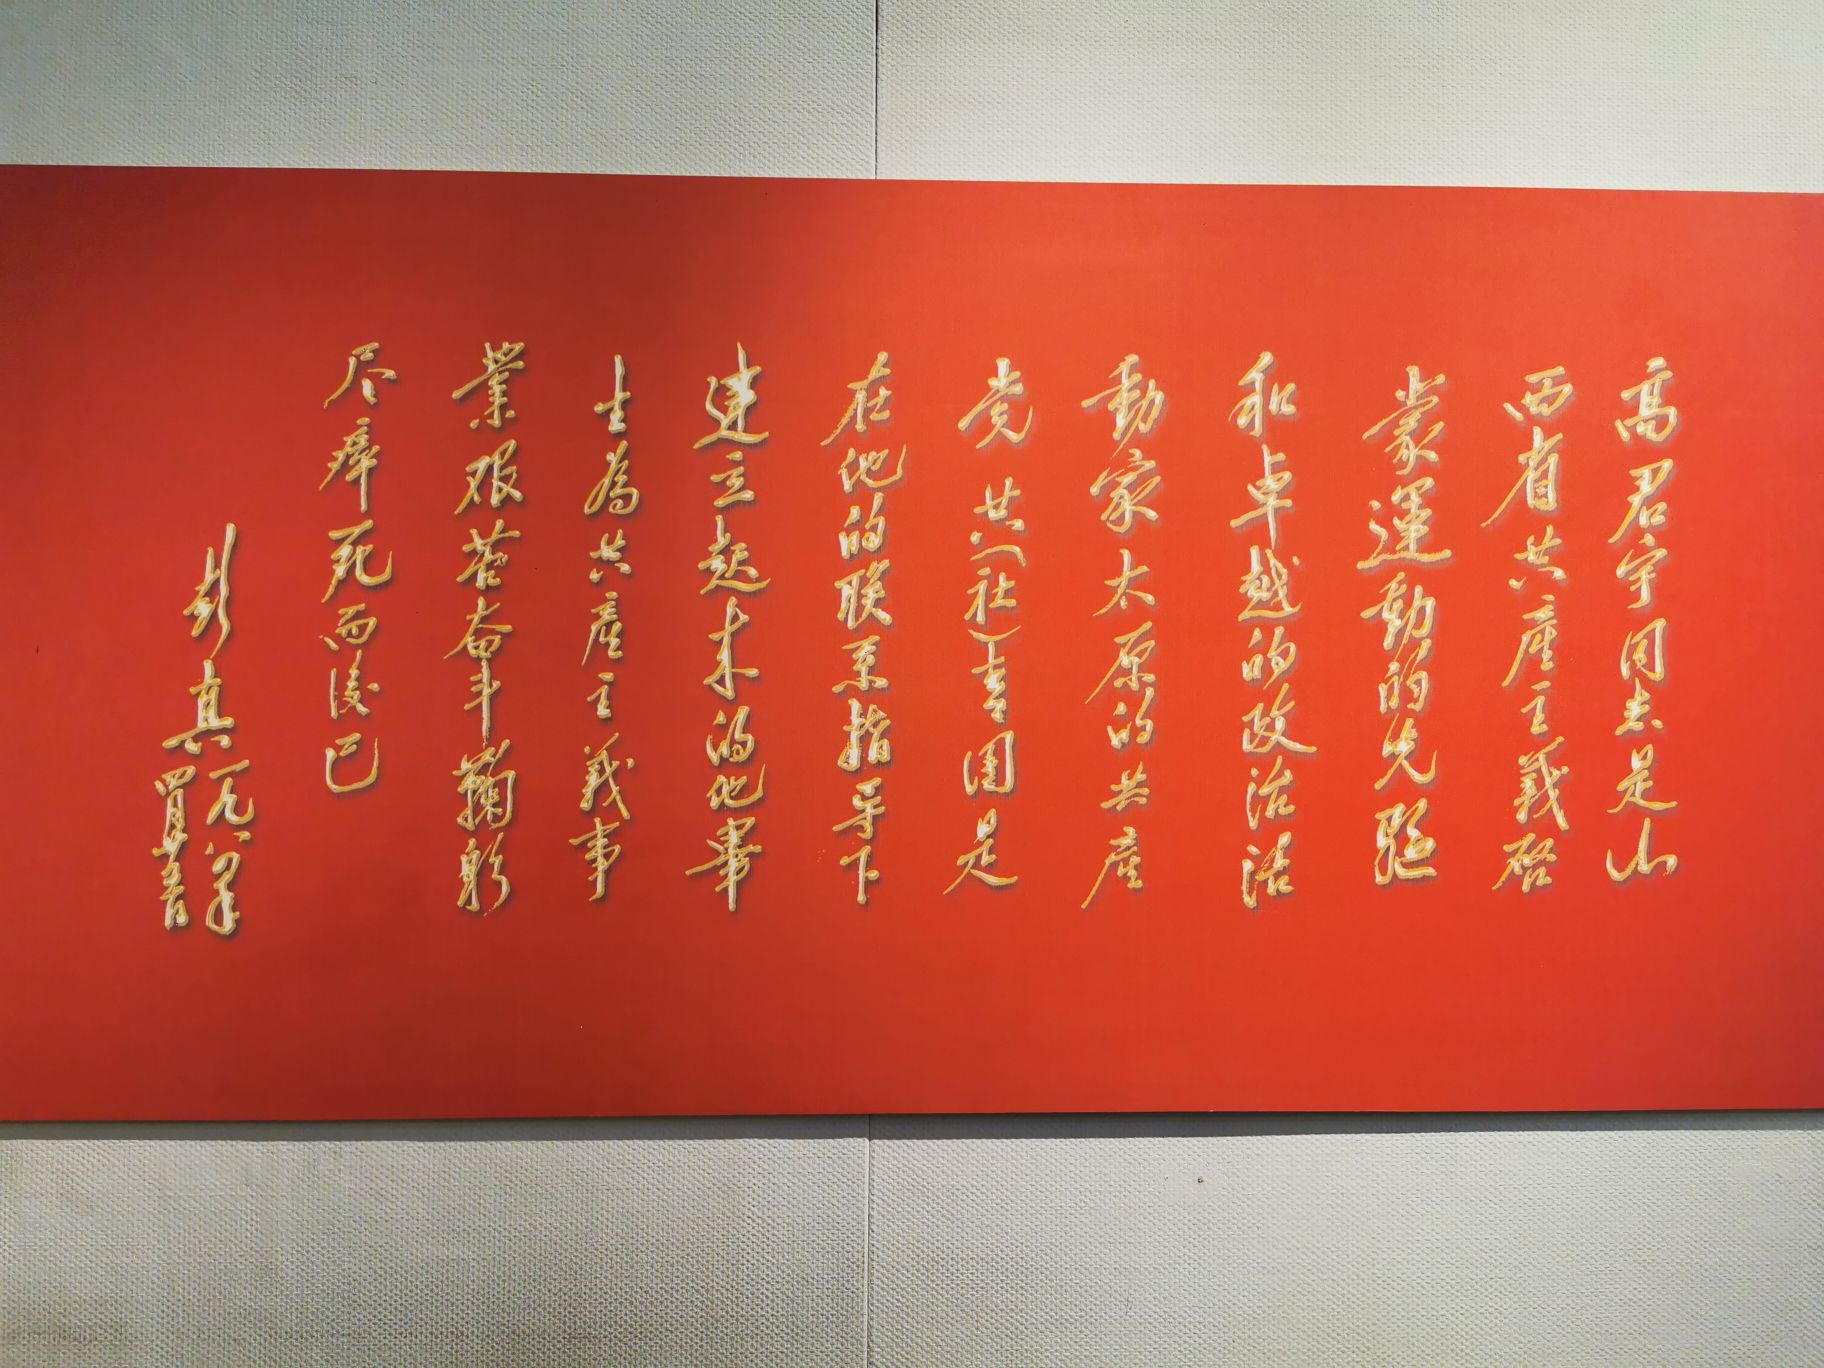 高君宇同志是山
西省共產主義啓
蒙運動的先驅
和卓越的政治活
動家太原的共產
党共(社)青团是
在他的联系指导下
建立起来的他畢
生為共產主義事
業艰苦奋斗鞠躬
尽瘁死而後已
彭真一九八
四月